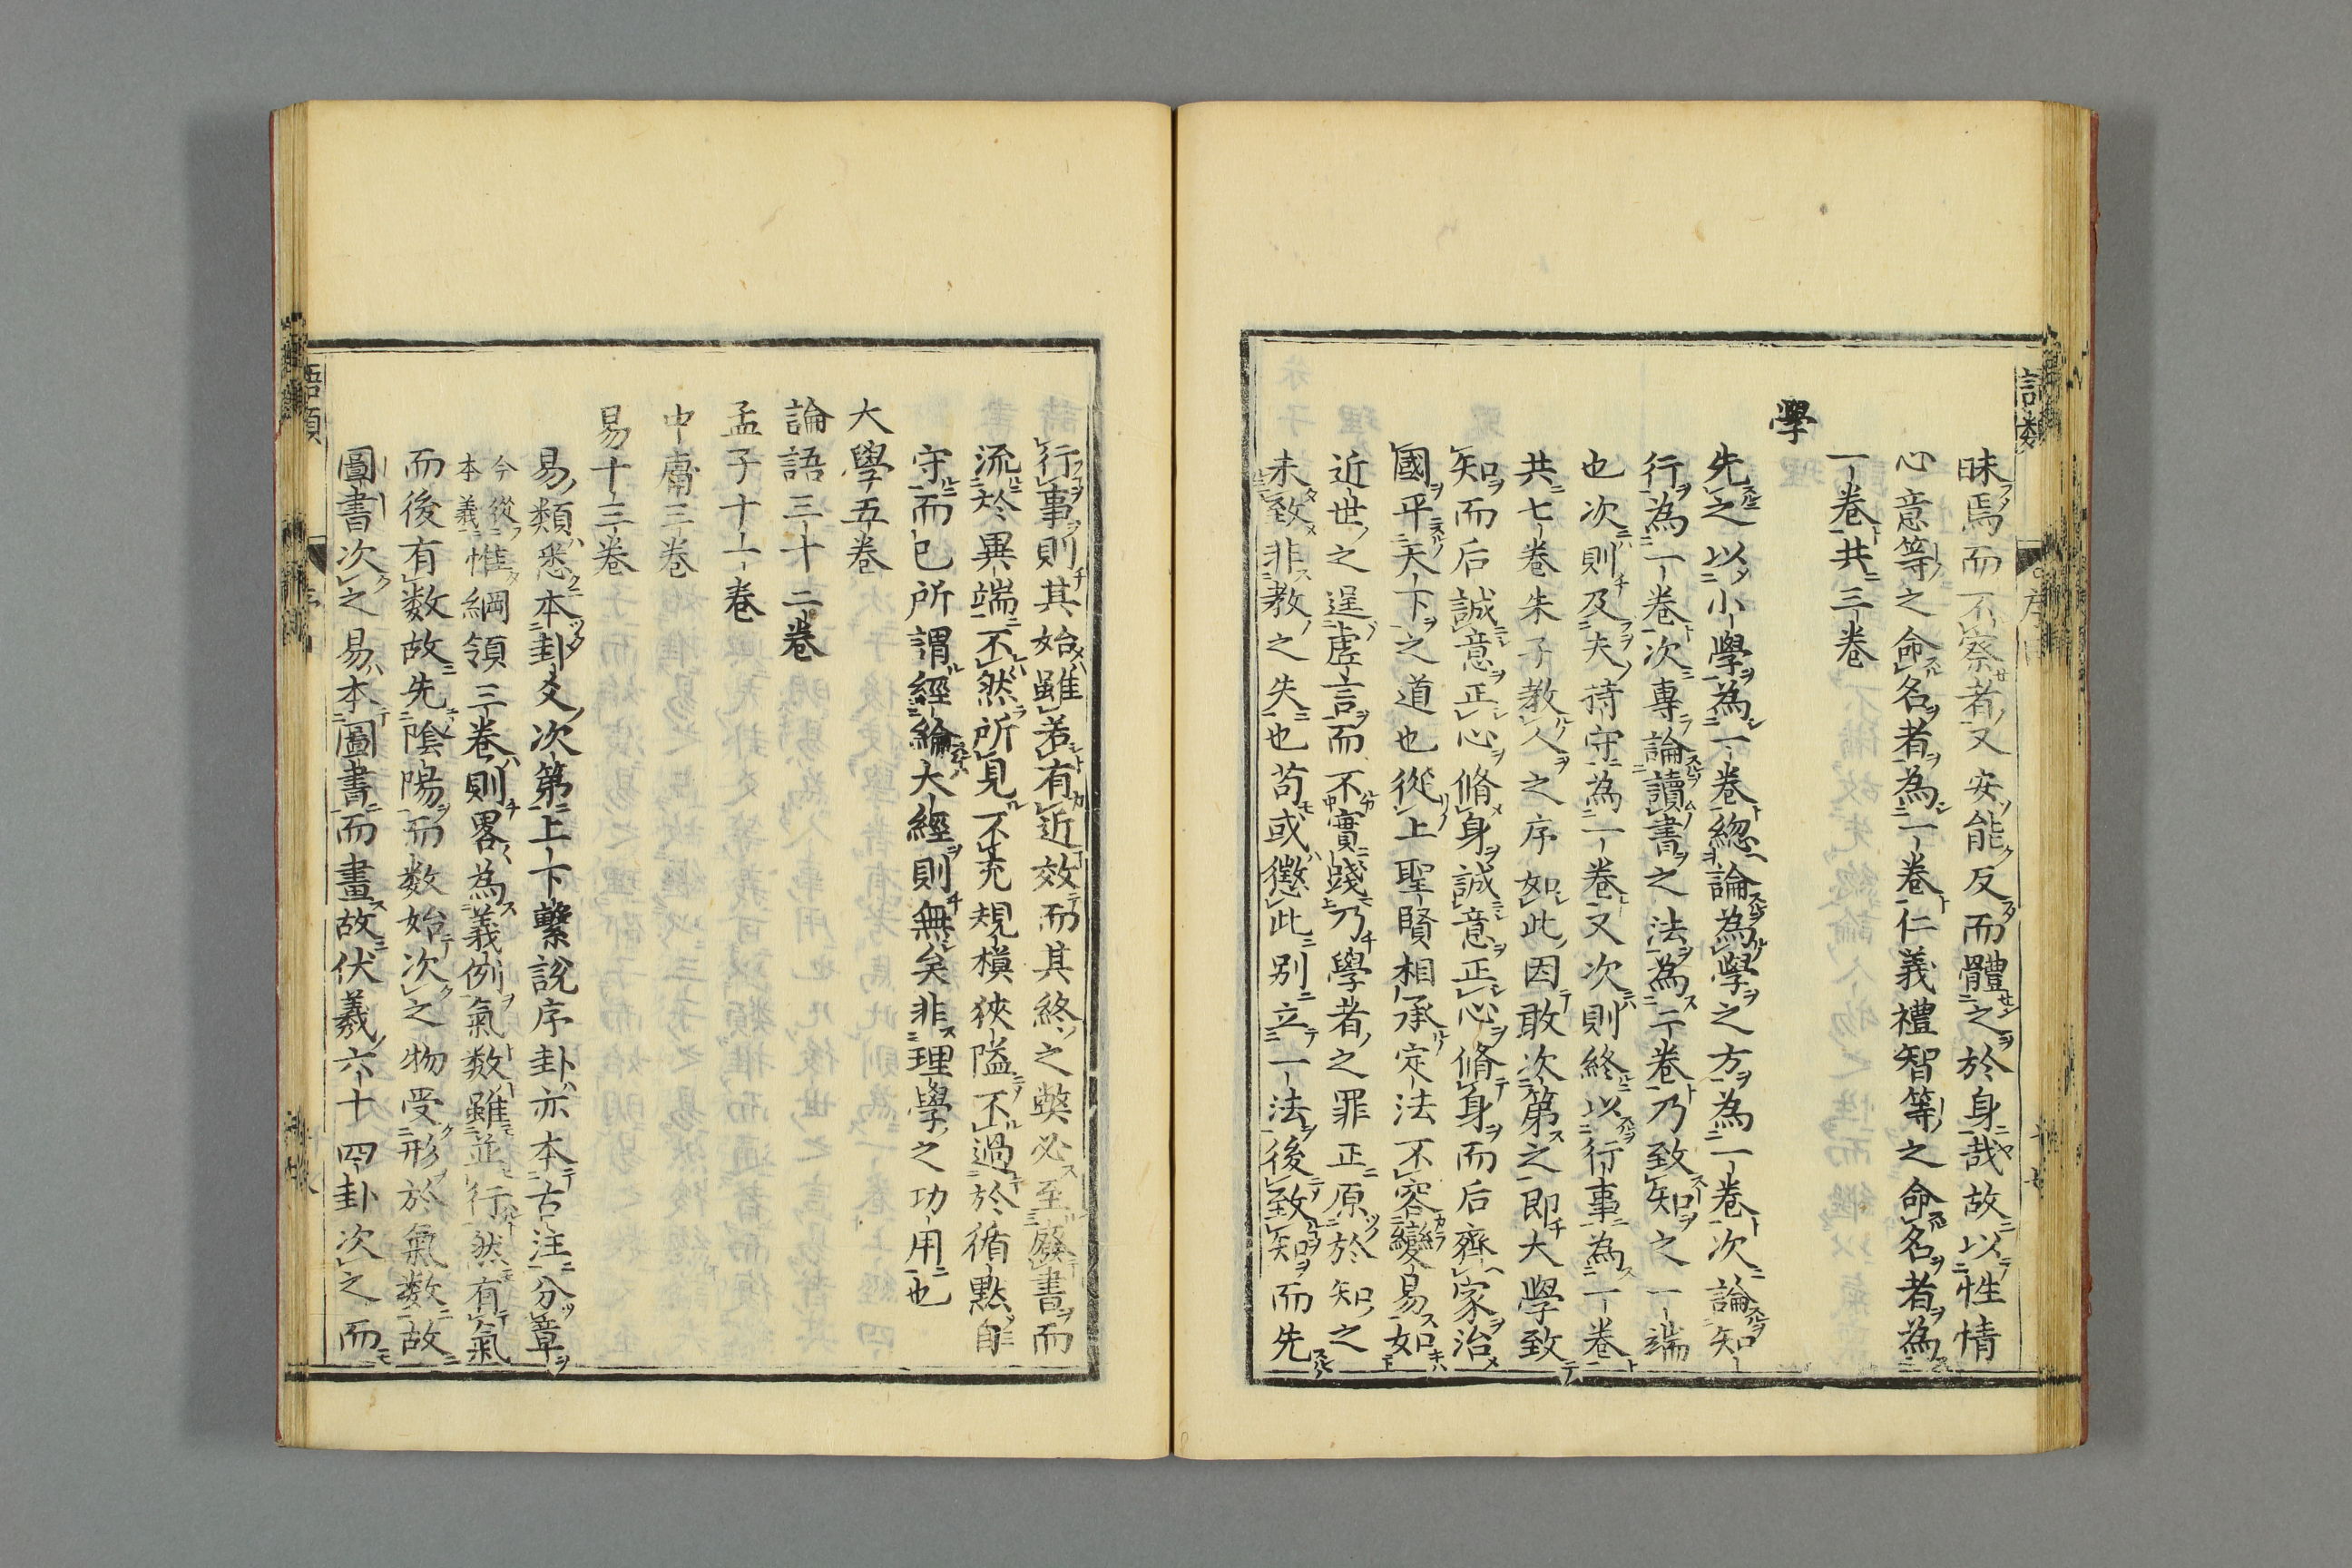 昧焉而不察者又安能反而體之於身哉故以性情
心意等之命名者為一卷仁義禮智等之命名者為
一卷共三卷
學
先之以小學為一卷總論為學之方為一卷次論知
行為一卷次專論讀書之法為二卷乃致知之一端
也次則及夫持守為一卷又次則終以行事為一卷
共七卷朱子教人之序如此因敢次第之即大學致
知而后誠意正心脩身誠意正心脩身而后齊家治
國平天下之道也從上聖賢相承定法不容變易如
近世之逞虛言而不實踐乃學者之罪正原於知之
未致非教之失也苟或懲此别立一法後致知而先
行事則其始雖若有近效而其終之獘必至廢書而
流於異端不然所見不充規模狹隘不過於循黙自
守而已所謂經綸大經則無矣非理學之功用也
大學五卷
論語三十二卷
孟子十一卷
中庸三卷
易十三卷
易類悉本卦爻次第上下繫說序卦亦本古注分章
今從本義惟綱領三卷則畧為義例氣数雖並行然有氣
而後有数故先陰陽而数始次之物受形於氣数故
圖書次之易本圖書而畫故伏羲六十四卦次之而